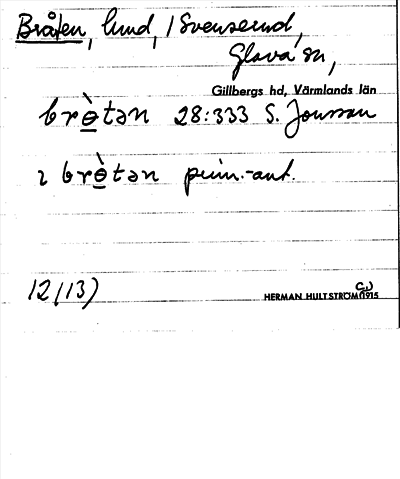 Bråten, lund, i Svenserud,
Glava sn,
Gillbergs hd, Värmlands län
brɵ̀tən 28:333 S. Jonsson
ɩ brɵ̀tən prim.-ant.
12(13)
HERMAN HULTSTRÖM 1915